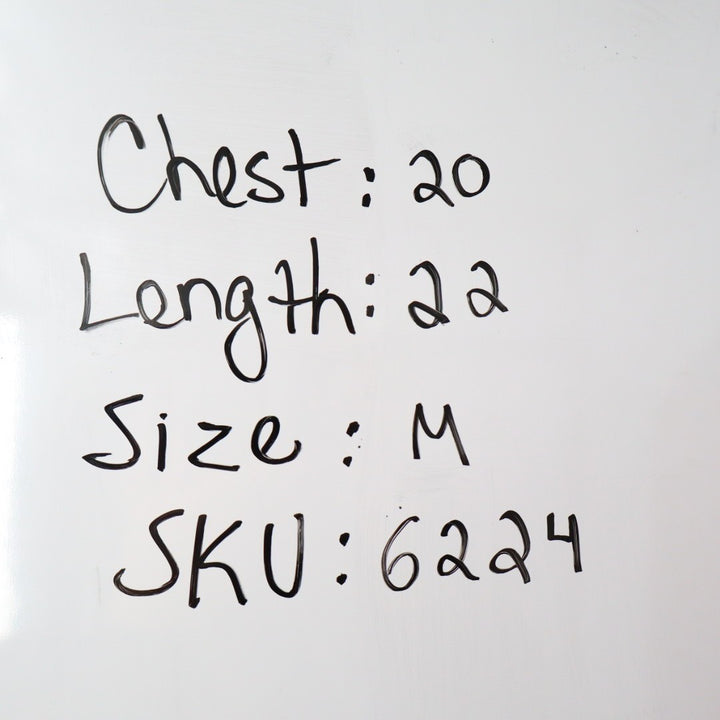 Chest: 20
Length: 22
Size: M
SKU: 6224